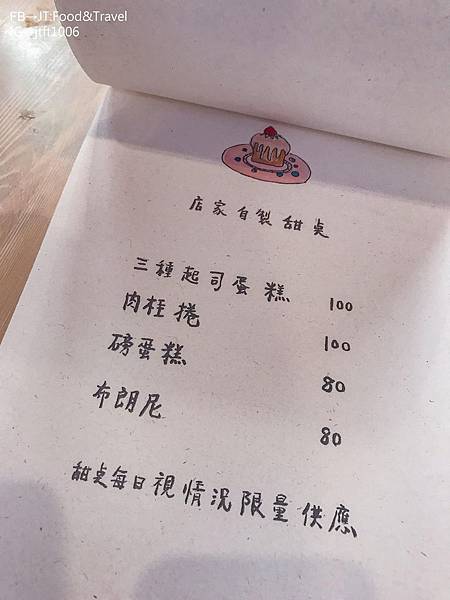 FB－JT.Food&Travel
IG－jtft1006
店家自製甜桌
三種起司蛋糕 100
肉桂捲 100
磅蛋糕 80
布朗尼 80
甜桌每日視情況限量供應